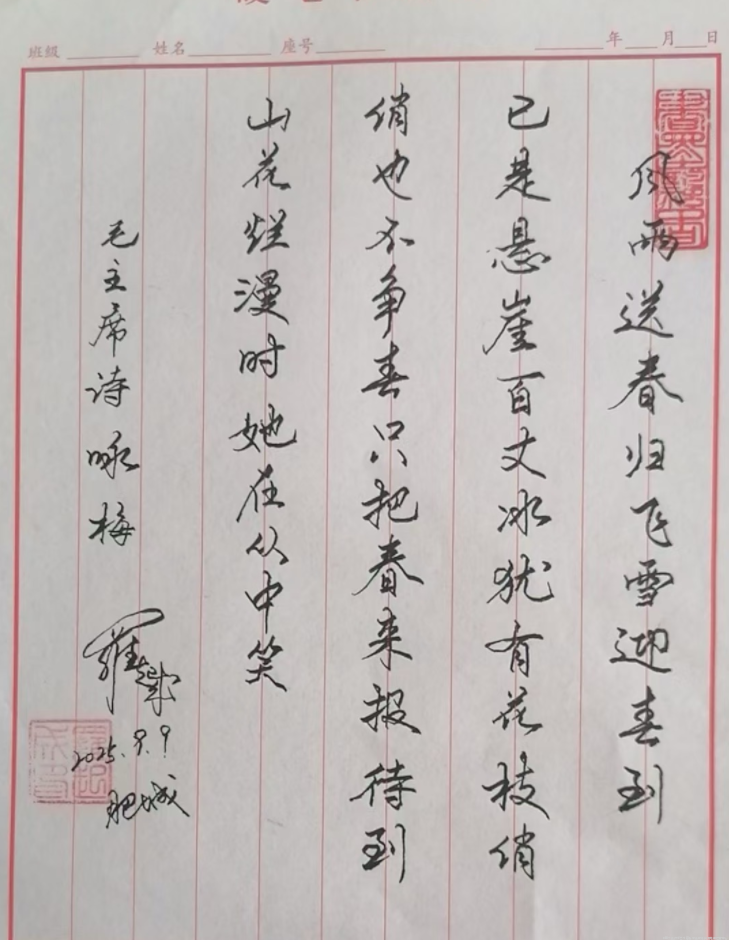 班级 姓名 座号 年 月 日
风雨送春归飞雪迎春到
已是悬崖百丈冰犹有花枝俏
俏也不争春只把春来报待到
山花烂漫时她在从中笑
毛主席诗咏梅
2025.9.9
肥城